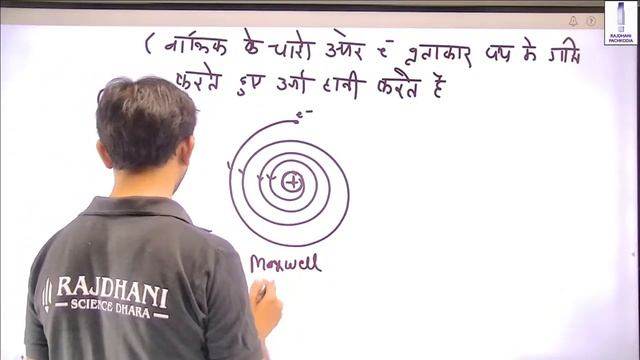 ( नाभिक के चारो ओर e⁻ वृताकार पथ मे गति
करते हुए उर्जा हानी करते है
e⁻
+
Maxwell
RAJDHANI
SCIENCE DHARA
RAJDHANI
PACHKODIA